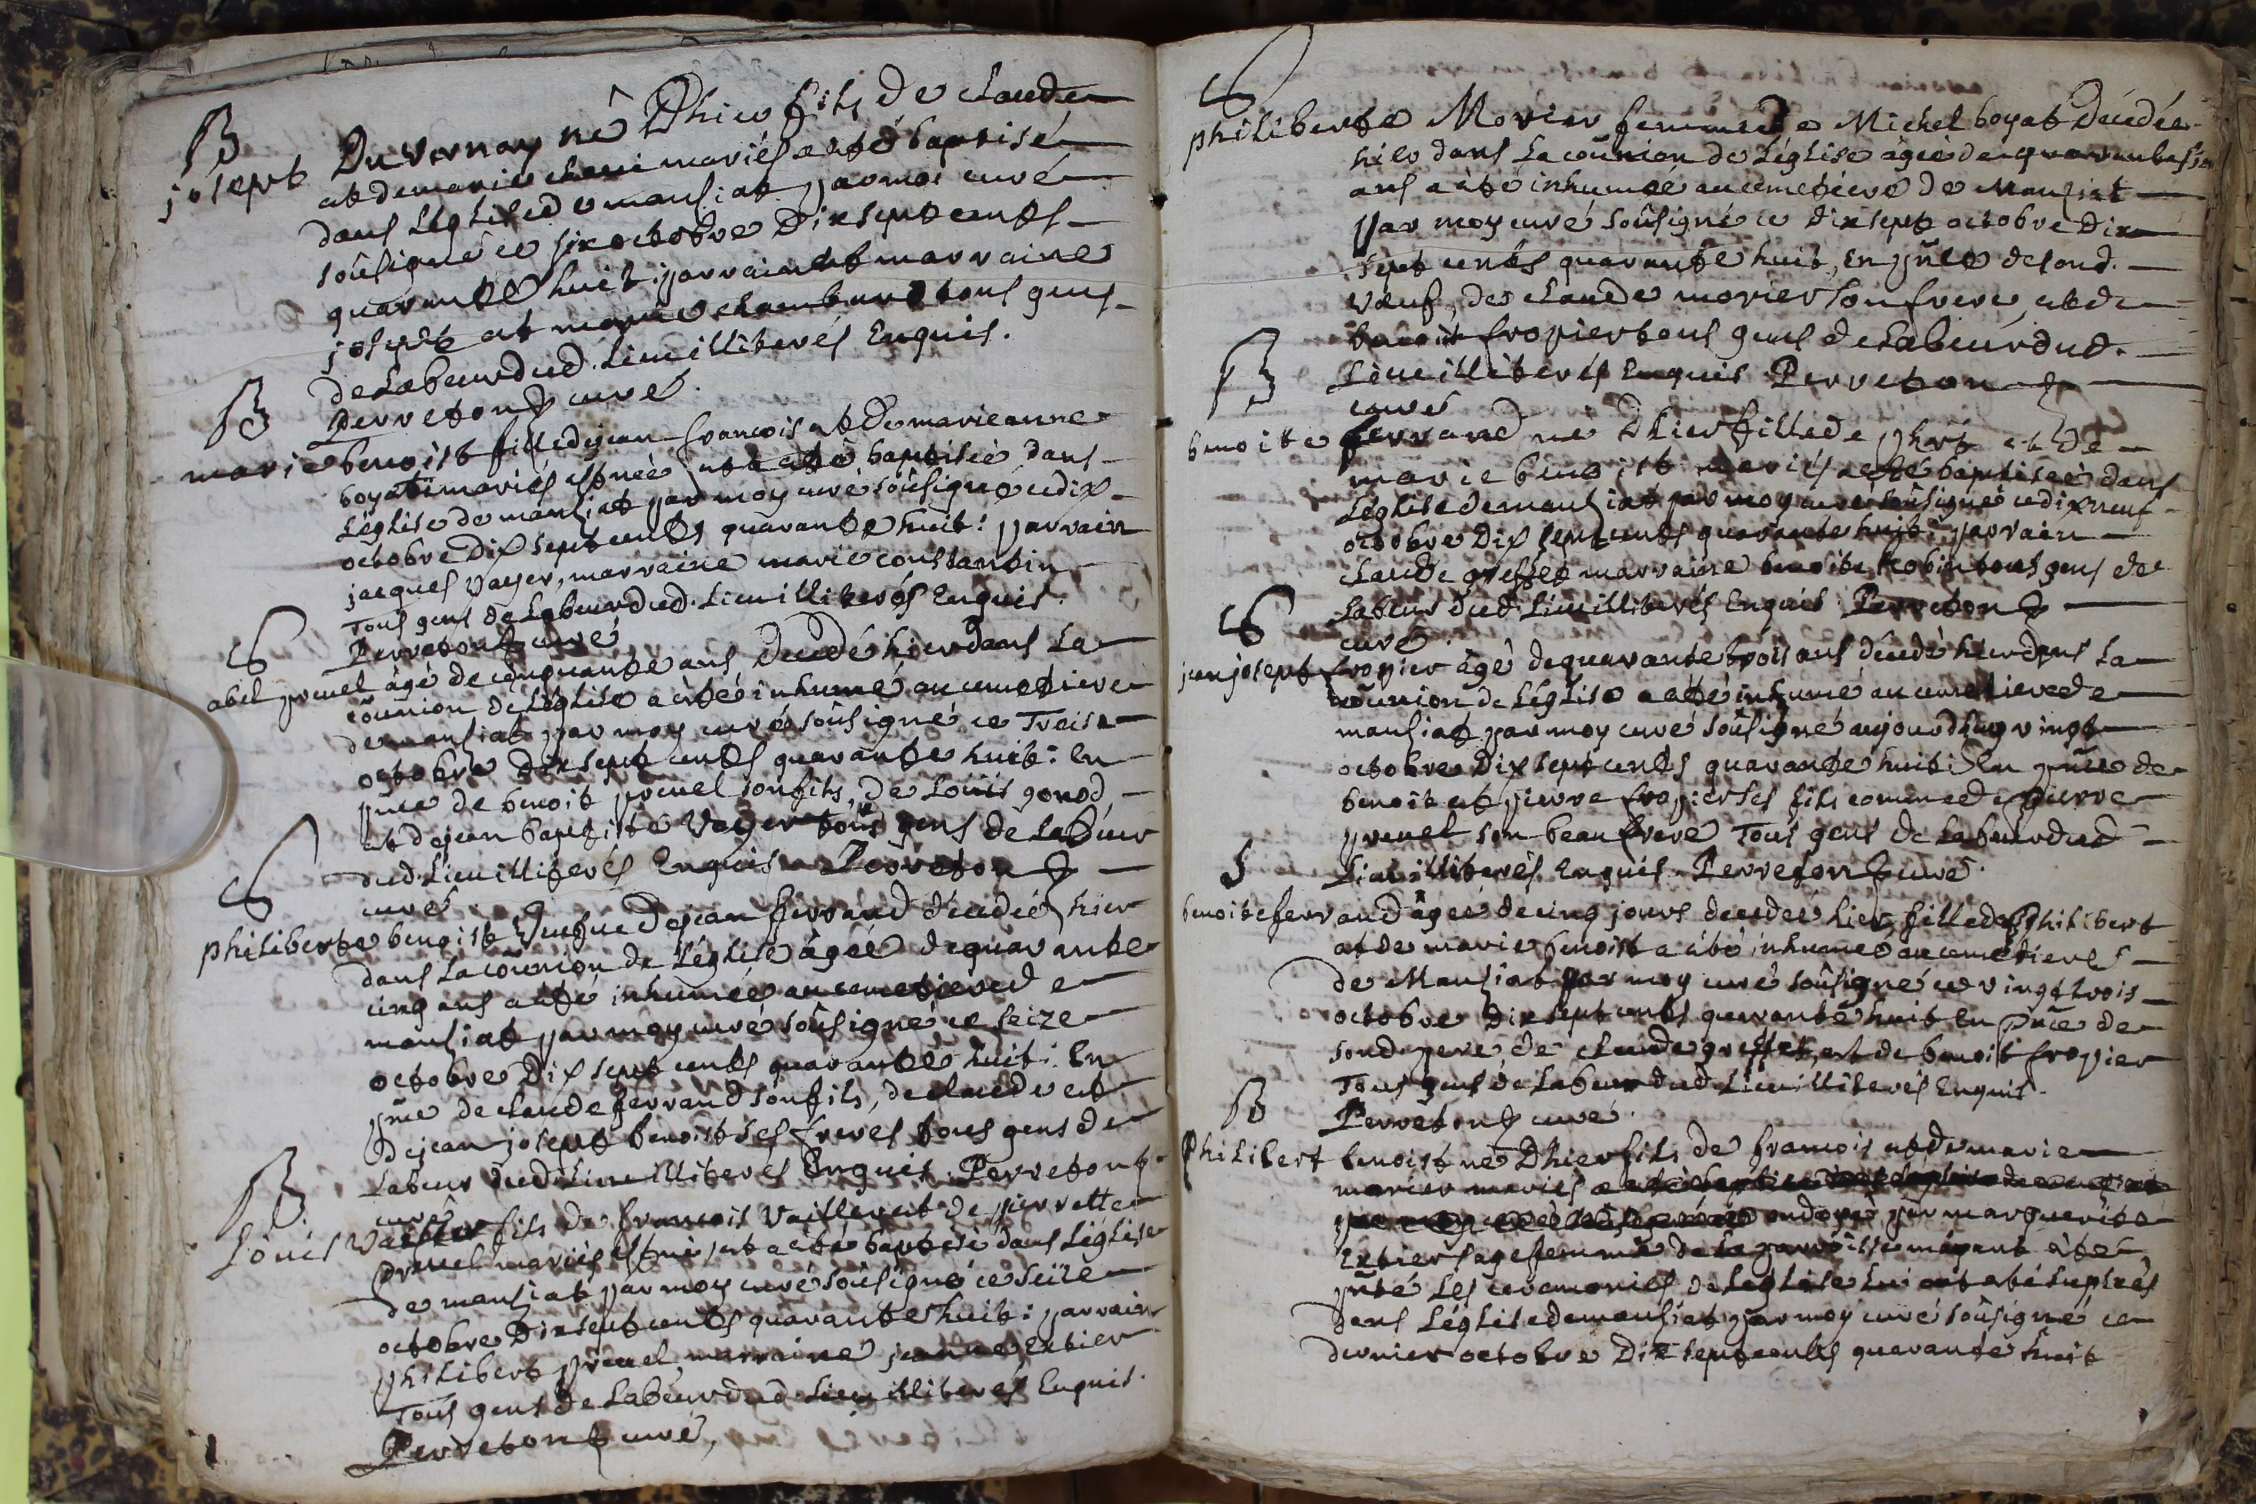 B
joseph Duvernay né Dhier fils de claude
et de marie mariés a eté baptisé
dans l'église de mansiat par moi curé
soûsigné ce six octobre Dix sept cents
quarante huit parrain et marraine
joseph et marie chambard tous gens
de Labeur dud. Lieu illiterés Enquis.
Perreton curé.
B
marie benoist fille de jean françois et de marie anne
boyat mariés est née et a eté baptisée dans
L'église de mansiat par moy curé soûsigné ce dix
octobre Dix sept cents quarante huit: parrain
jacques vayer, marraine marie constantin
Tous gens de Labeur dud. Lieu illiterés Enquis.
Perreton curé
S
abel preuel âgé de cinquante ans décedé hier dans La
coûnion de L'église a eté inhumé au cemetiere
de mansiat par moy curé soûsigné ce Treize
octobre Dix sept cents quarante huit: En
pñce de benoit preuel son fils, de Loüis gonod,
et de jean baptiste Vayer tous gens de Labeur
dud. Lieu illiterés Enquis Perreton
curé
S
philiberte benoist Veufue de jean ferrand décedée hier
dans La coûnion de L'église âgée de quarante
cinq ans a eté inhumée au cemetiere de
mansiat par moy curé soûsigné, ce seize
octobre Dix sept cents quarante huit: En
pñce de claude ferrand son fils, de claude et
de jean joseph benoist ses freres tous gens de
Labeur dud. Lieu illiterés Enquis Perreton
curé
B
Loüis fils de françois Vailler et de pierrette
preuel mariés est né et a eté baptisé dans L'église
de mansiat par moy curé soûsigné ce seize
octobre Dix sept cents quarante huit: parrain
philibert preuel, marraine jeanne Extier
Tous gens de Labeur dud. Lieu illiterés Enquis.
Perreton curé,
S
philiberte Morier femme de Michel boyat Décedée
hier dans La coûnion de L'église âgée de quarante
ans a eté inhumée au cemetiere de Mansiat
par moy curé soûsigné ce dix sept octobre Dix
sept cents quarante huit, En pñce de sond.
Vœuf, de claude morier son frere, et de
benoit fropier tous gens de Labeur dud.
Lieu illiterés Enquis Perreton
curé
B
benoite ferrand né Dhier fille de phrt et de
marie benoist mariés a eté baptisée dans
L'église de mansiat par moy curé soûsigné ce dix neuf
octobre Dix sept cents quarante huit: parrain
claude greffet marraine benoite Robin tous gens de
Labeur dud. Lieu illiterés Enquis Perreton
curé
S
jean joseph fropier âgé de quarante trois ans décedé hier dans La
coûnion de L'église a eté inhumé au cemetiere de
mansiat par moy curé soûsigné aujourdhuy vingt
octobre Dix sept cents quarante huit: En pñce de
benoit et pierre fropier ses fils comme de pierre
preuel son beau frere Tous gens de Labeur dud
Lieu illiterés Enquis. Perreton curé.
S
benoite ferrand âgée de cinq jours decedée hier, fille de Philibert
et de marie benoist a eté inhumée au cemetiere
de Mansiat par moy curé soûsigné ce vingt trois
octobre Dix sept cents quarante huit En pñce de
sond. pere de claude greffet, et de benoit fropier
Tous gens de Labeur dud. Lieu illiterés Enquis.
Perreton curé.
B
Philibert benoist né Dhier fils de françois et de marie
morier mariés
ondoyé par marguerite
Extier sage femme de La parroisse m'ayant eté
pñté Les ceremonies de L'église Lui ont eté supleés
dans L'église de mansiat par moy curé soûsigné ce
dernier octobre Dix sept cents quarante huit